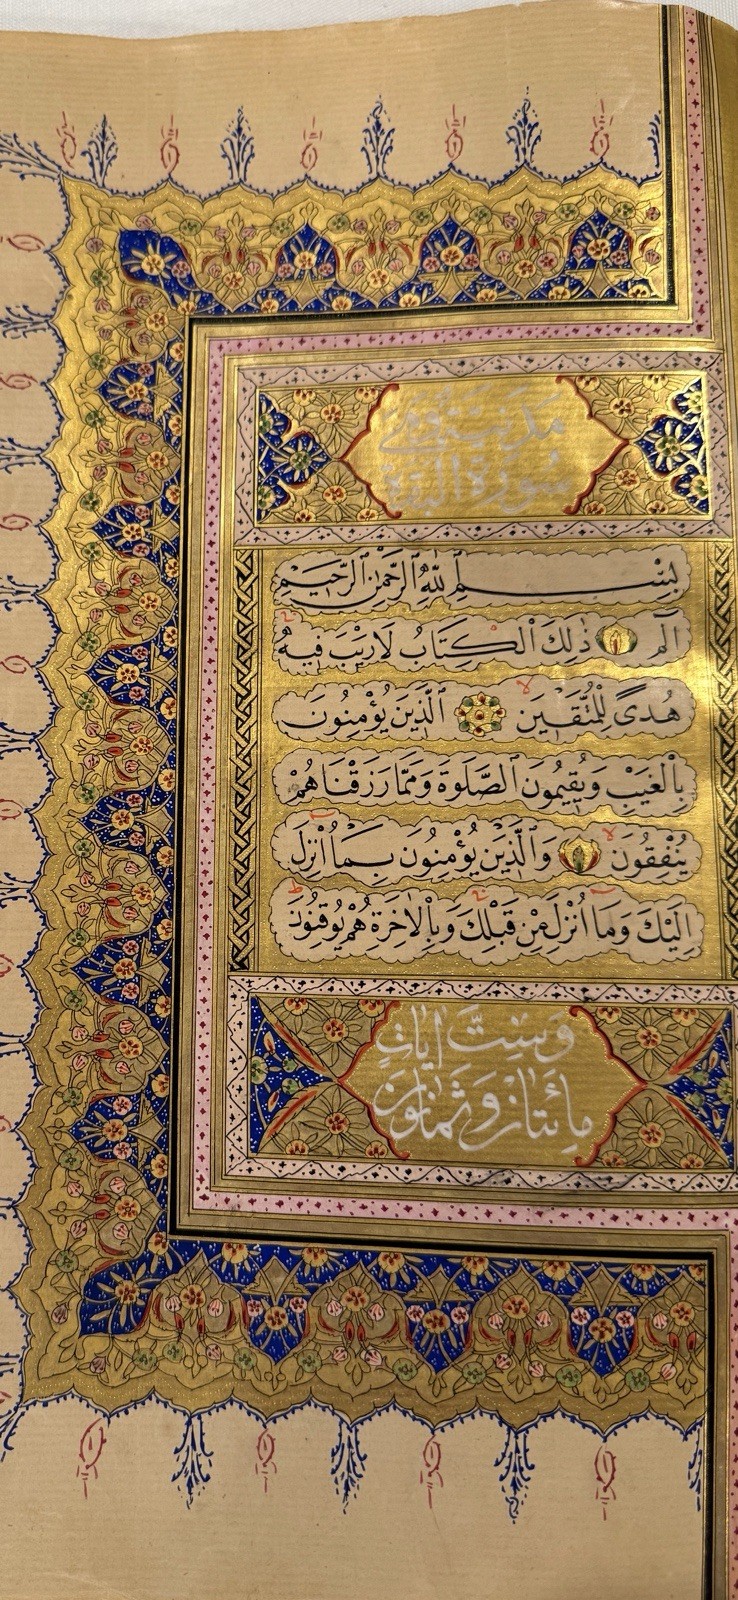 مَدَنِيَّةٌ وَهِيَ
سُورَةُ الْبَقَرَةِ
بِسْمِ اللّٰهِ الرَّحْمٰنِ الرَّحِيمِ
الٓمٓ ذٰلِكَ الْكِتَابُ لَا رَيْبَ فِيهِ
هُدًى لِلْمُتَّقِينَ الَّذِينَ يُؤْمِنُونَ
بِالْغَيْبِ وَيُقِيمُونَ الصَّلٰوةَ وَمِمَّا رَزَقْنَاهُمْ
يُنْفِقُونَ وَالَّذِينَ يُؤْمِنُونَ بِمَٓا اُنْزِلَ
اِلَيْكَ وَمَٓا اُنْزِلَ مِنْ قَبْلِكَ وَبِالْاٰخِرَةِ هُمْ يُوقِنُونَ
وَسِتُّ اٰيَاتٍ
مِائَتَانِ وَثَمَانُونَ